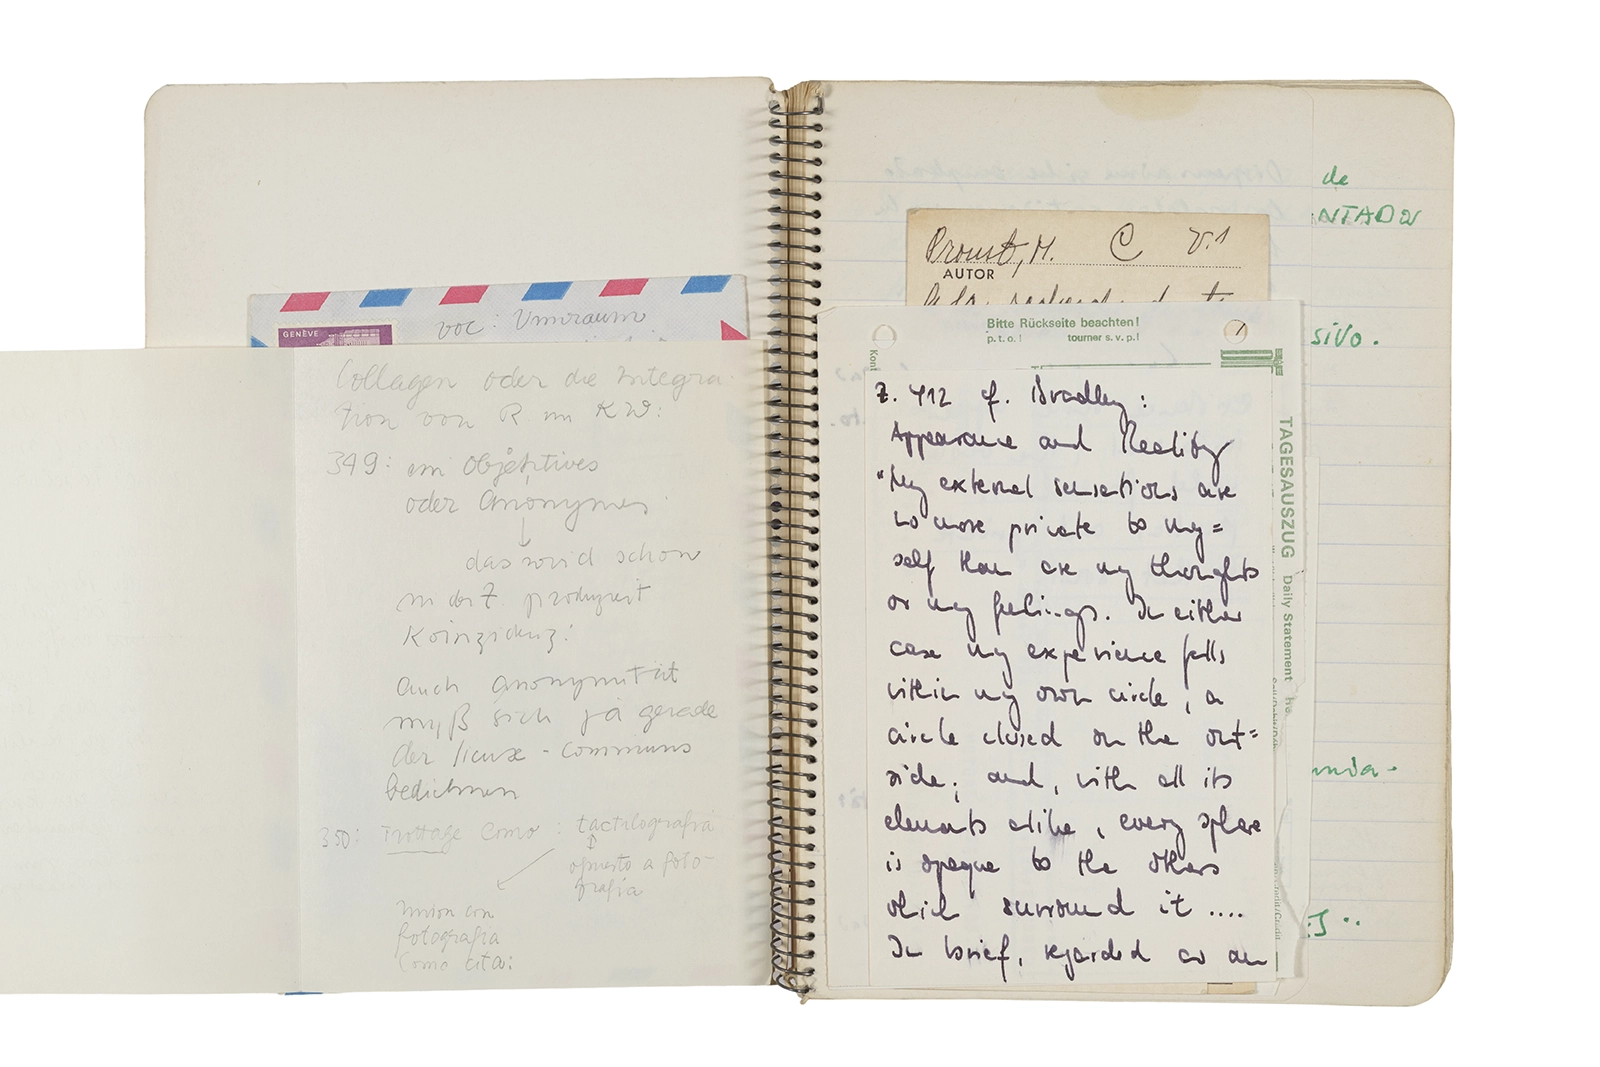 GENÈVE
voc: Umraum
Collagen oder die Integra-
tion von R im KW:
349: ein Objektives
oder Anonymes
↓
das wird schon
in der Z. produziert
Koinzidenz!
auch Anonymität
muß sich ja gerade
der lieux-communs
bedienen
350: Frottage como: tactilografia
opuesto a foto-
grafia
union con
fotografia
como cita:
Proust, M. C V.1
AUTOR
Bitte Rückseite beachten!
p. t. o. ! tourner s. v. p. !
1
TAGESAUSZUG Daily Statement
Z. 412 cf. Bradley:
Appearance and Reality
"My external sensations are
no more private to my=
self than are my thoughts
or my feelings. In either
case my experience falls
within my own circle, a
circle closed on the out=
side; and, with all its
elements alike, every sphere
is opaque to the others
which surround it ....
In brief, regarded as an
de
NTADO
sivo.